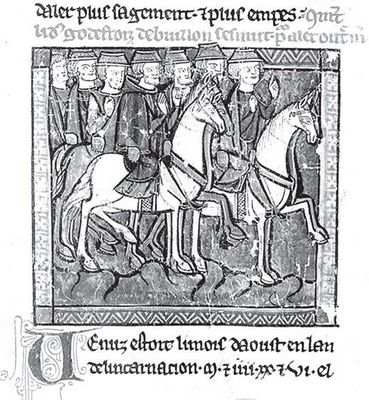 daler plus sagement · ⁊ plus en pes · Quāt
li dus godefroiz de buillon sesmut aler
Venuz estoit li mois daoust en lan
delincarnacion · M · ⁊ iiii · xx · ⁊ vi · el